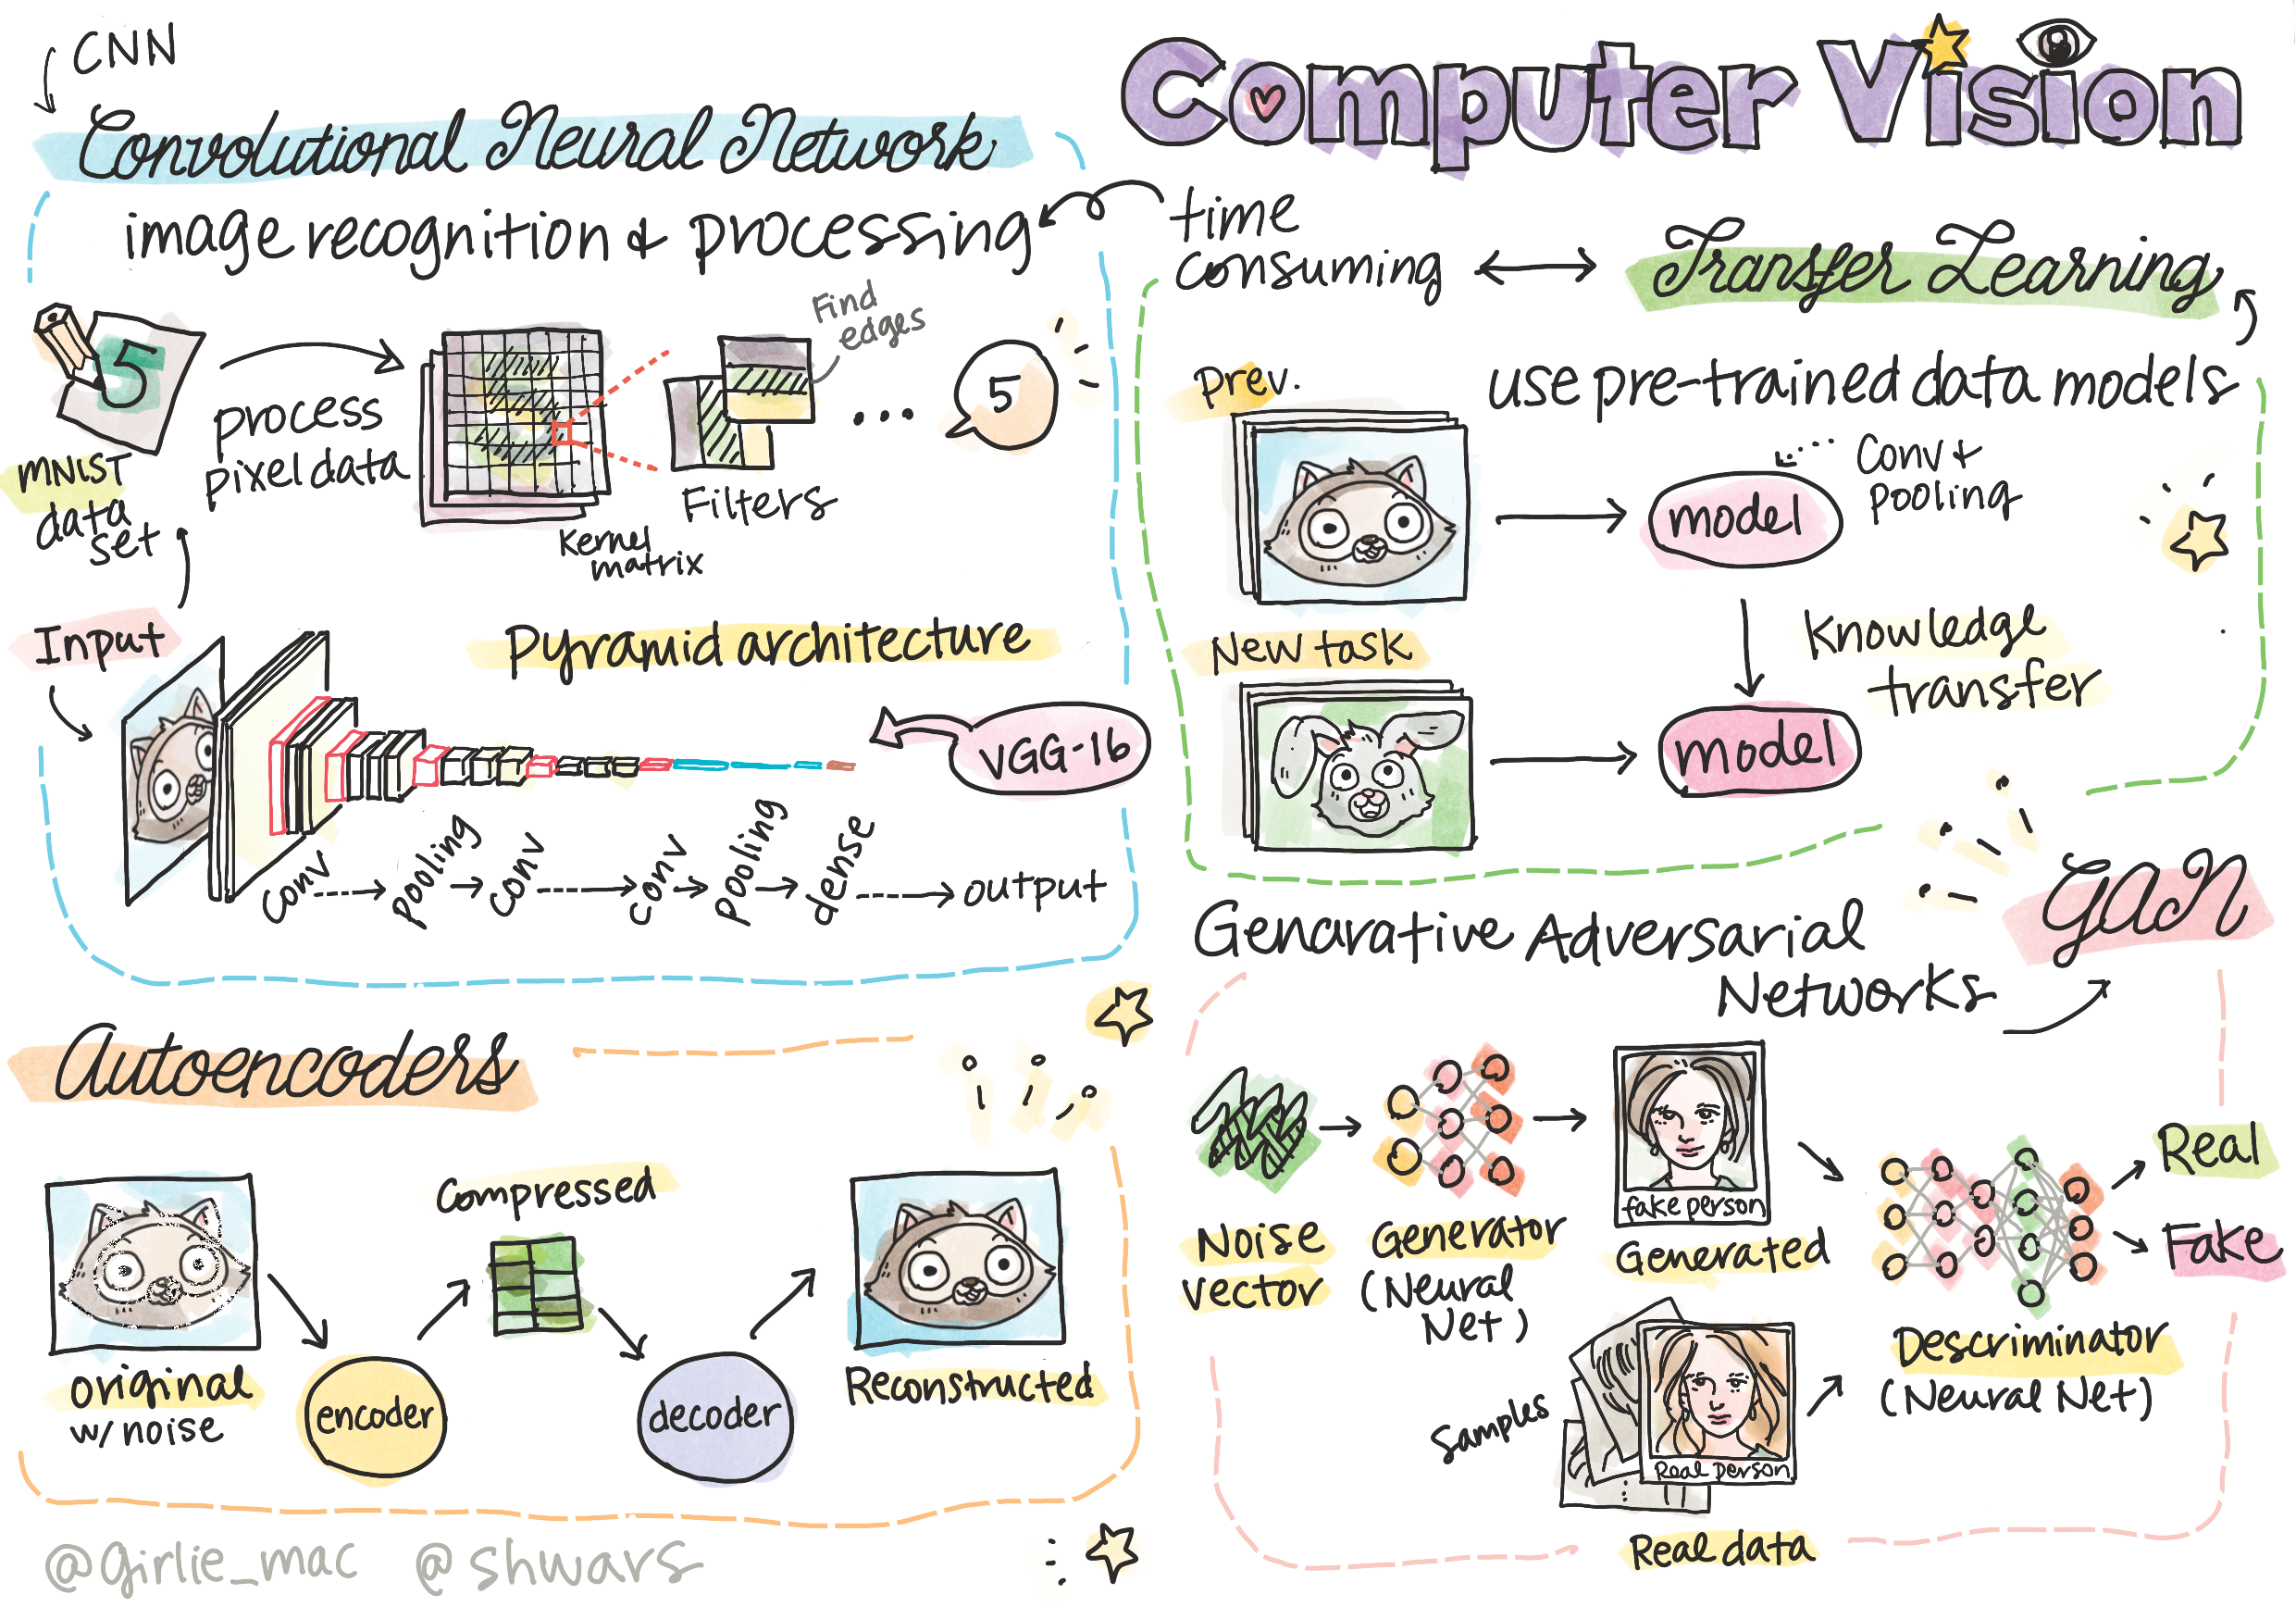 CNN
Convolutional Neural Network
image recognition & processing
5
MNIST
data
set
process
pixel data
Kernel
matrix
Find
edges
Filters
...
5
Input
Pyramid architecture
VGG-16
conv
pooling
conv
conv
pooling
dense
output
Computer Vision
time
consuming
Transfer Learning
use pre-trained data models
prev.
model
Conv +
pooling
Knowledge
transfer
New task
model
Autoencoders
original
w/ noise
encoder
Compressed
decoder
Reconstructed
GAN
Genarative Adversarial
Networks
Noise
vector
Generator
(Neural
Net)
fake person
Generated
Samples
Real person
Real data
Descriminator
(Neural Net)
Real
Fake
@girlie_mac @shwars